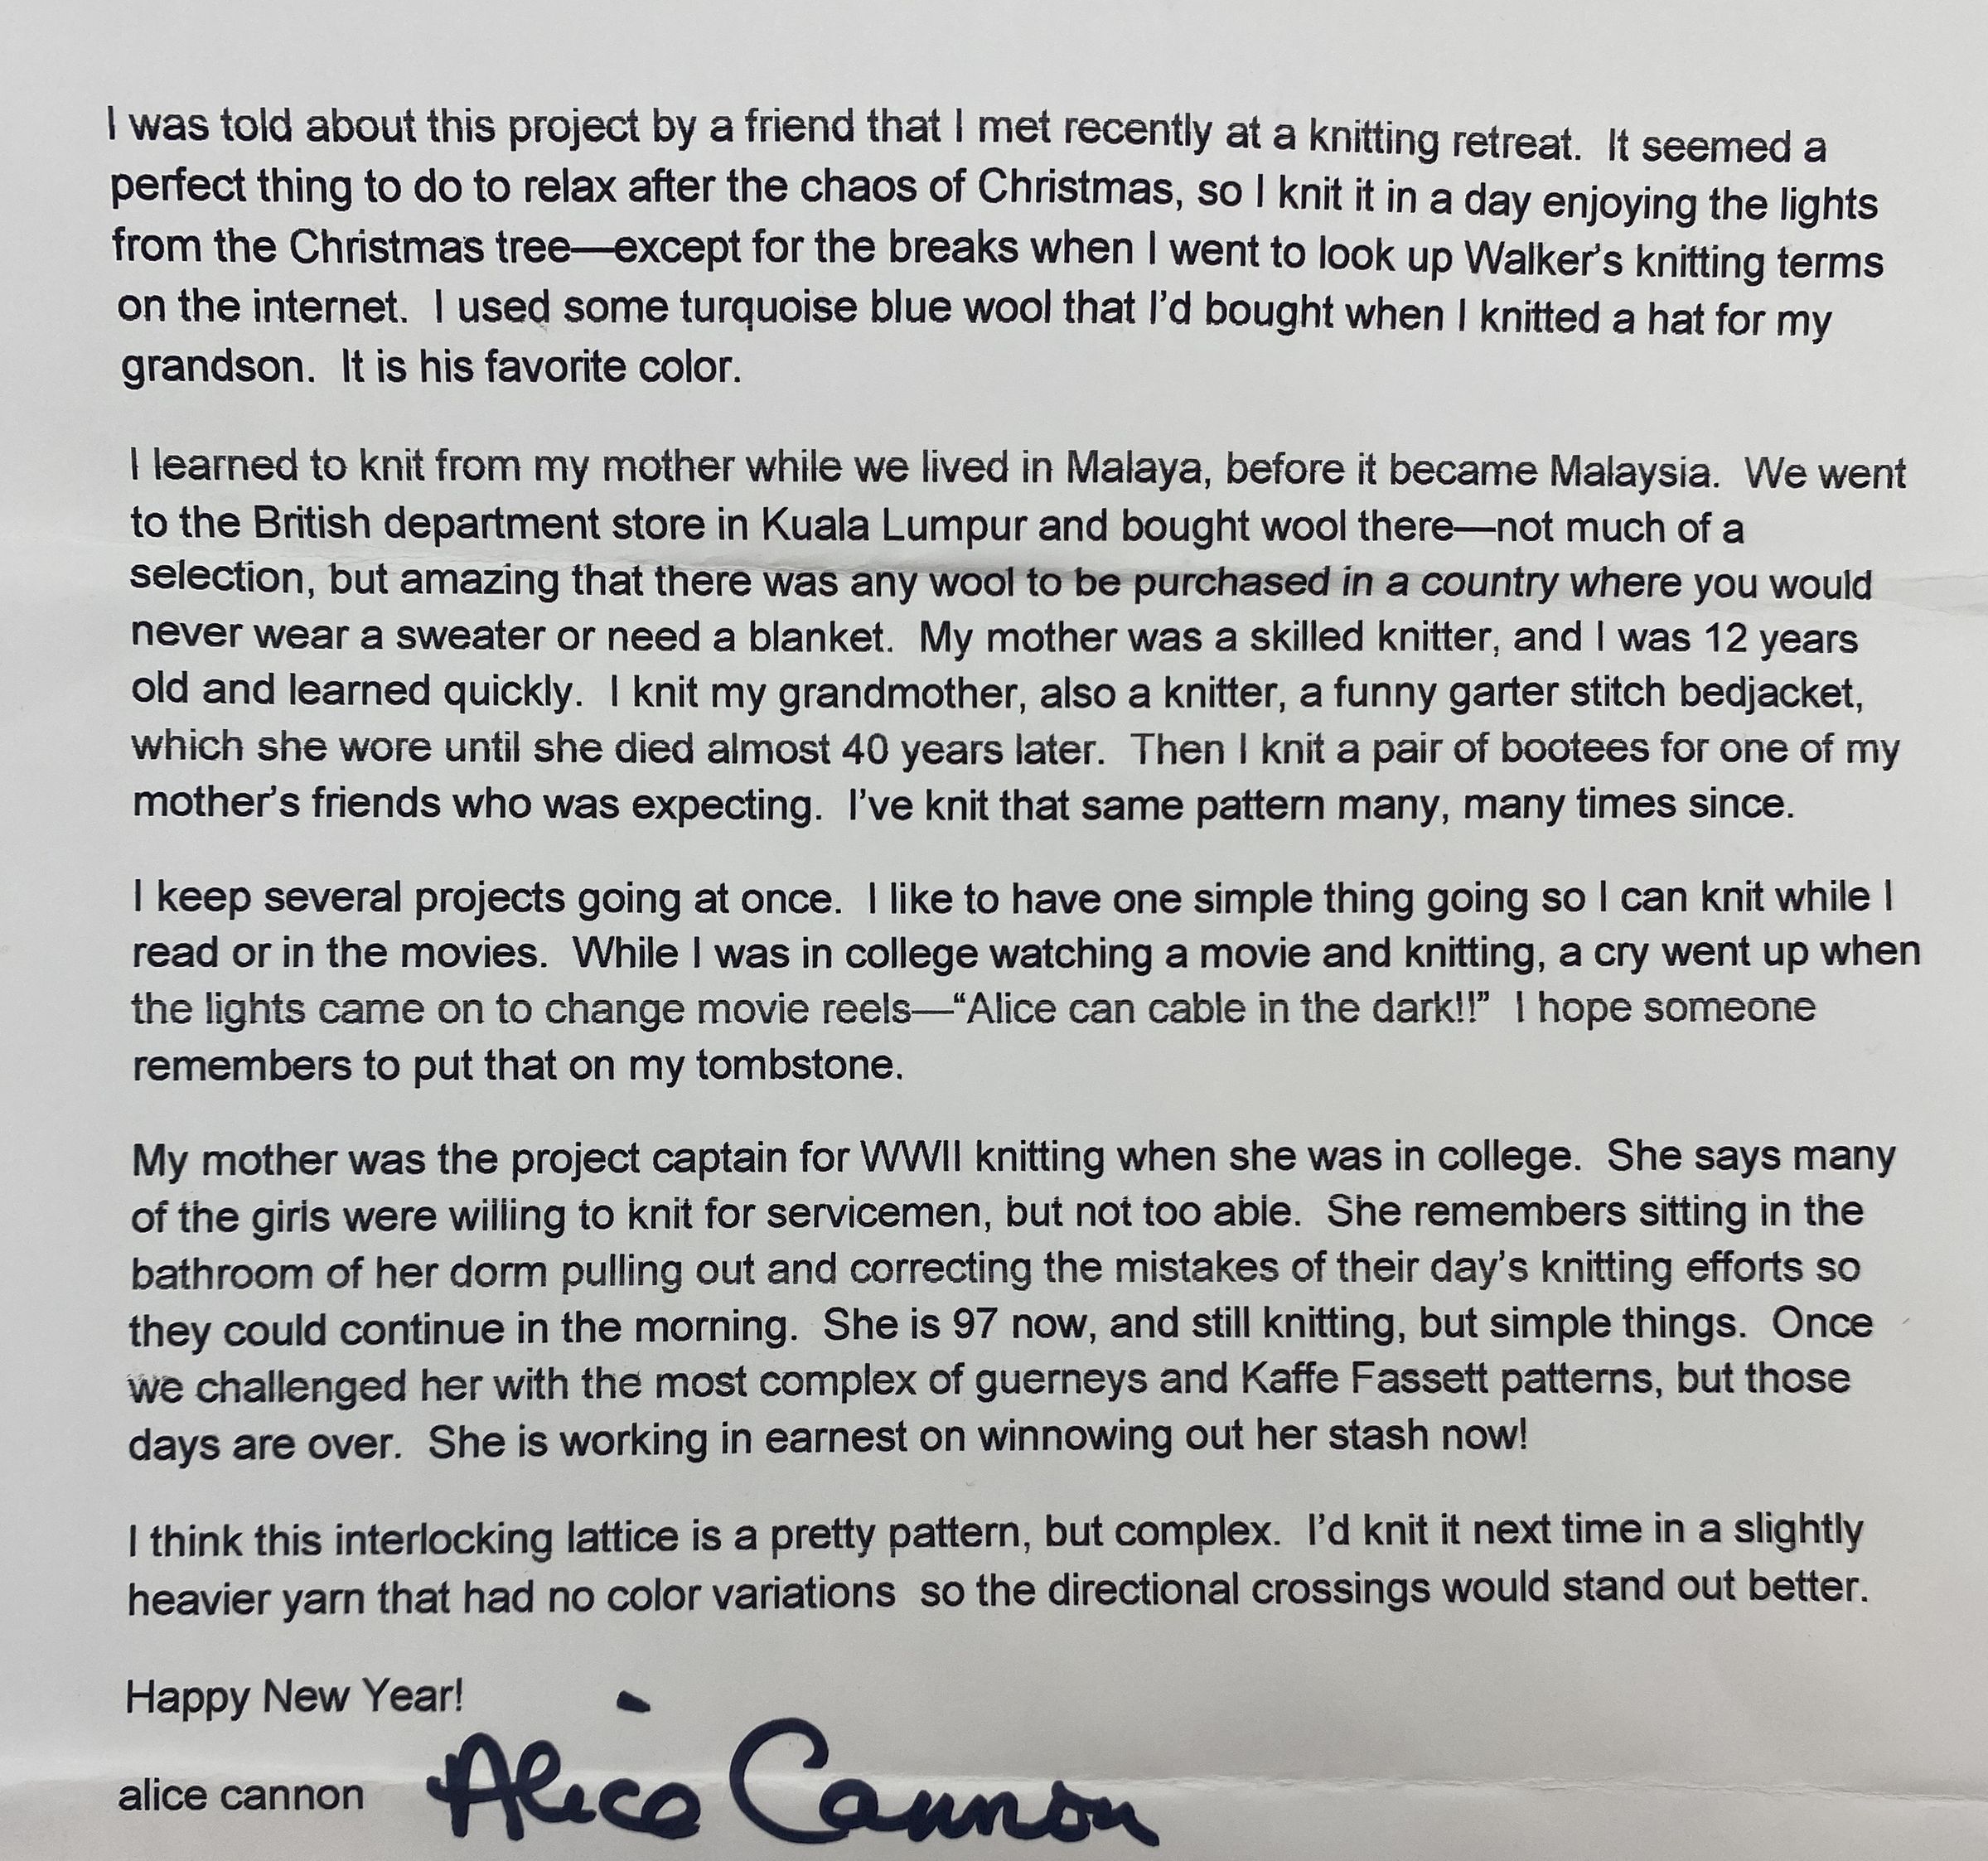 I was told about this project by a friend that I met recently at a knitting retreat.  It seemed a
perfect thing to do to relax after the chaos of Christmas, so I knit it in a day enjoying the lights
from the Christmas tree—except for the breaks when I went to look up Walker's knitting terms
on the internet.  I used some turquoise blue wool that I'd bought when I knitted a hat for my
grandson.  It is his favorite color.

I learned to knit from my mother while we lived in Malaya, before it became Malaysia.  We went
to the British department store in Kuala Lumpur and bought wool there—not much of a
selection, but amazing that there was any wool to be purchased in a country where you would
never wear a sweater or need a blanket.  My mother was a skilled knitter, and I was 12 years
old and learned quickly.  I knit my grandmother, also a knitter, a funny garter stitch bedjacket,
which she wore until she died almost 40 years later.  Then I knit a pair of bootees for one of my
mother's friends who was expecting.  I've knit that same pattern many, many times since.

I keep several projects going at once.  I like to have one simple thing going so I can knit while I
read or in the movies.  While I was in college watching a movie and knitting, a cry went up when
the lights came on to change movie reels—“Alice can cable in the dark!!”  I hope someone
remembers to put that on my tombstone.

My mother was the project captain for WWII knitting when she was in college.  She says many
of the girls were willing to knit for servicemen, but not too able.  She remembers sitting in the
bathroom of her dorm pulling out and correcting the mistakes of their day's knitting efforts so
they could continue in the morning.  She is 97 now, and still knitting, but simple things.  Once
we challenged her with the most complex of guerneys and Kaffe Fassett patterns, but those
days are over.  She is working in earnest on winnowing out her stash now!

I think this interlocking lattice is a pretty pattern, but complex.  I'd knit it next time in a slightly
heavier yarn that had no color variations  so the directional crossings would stand out better.

Happy New Year!

alice cannon Alice Cannon